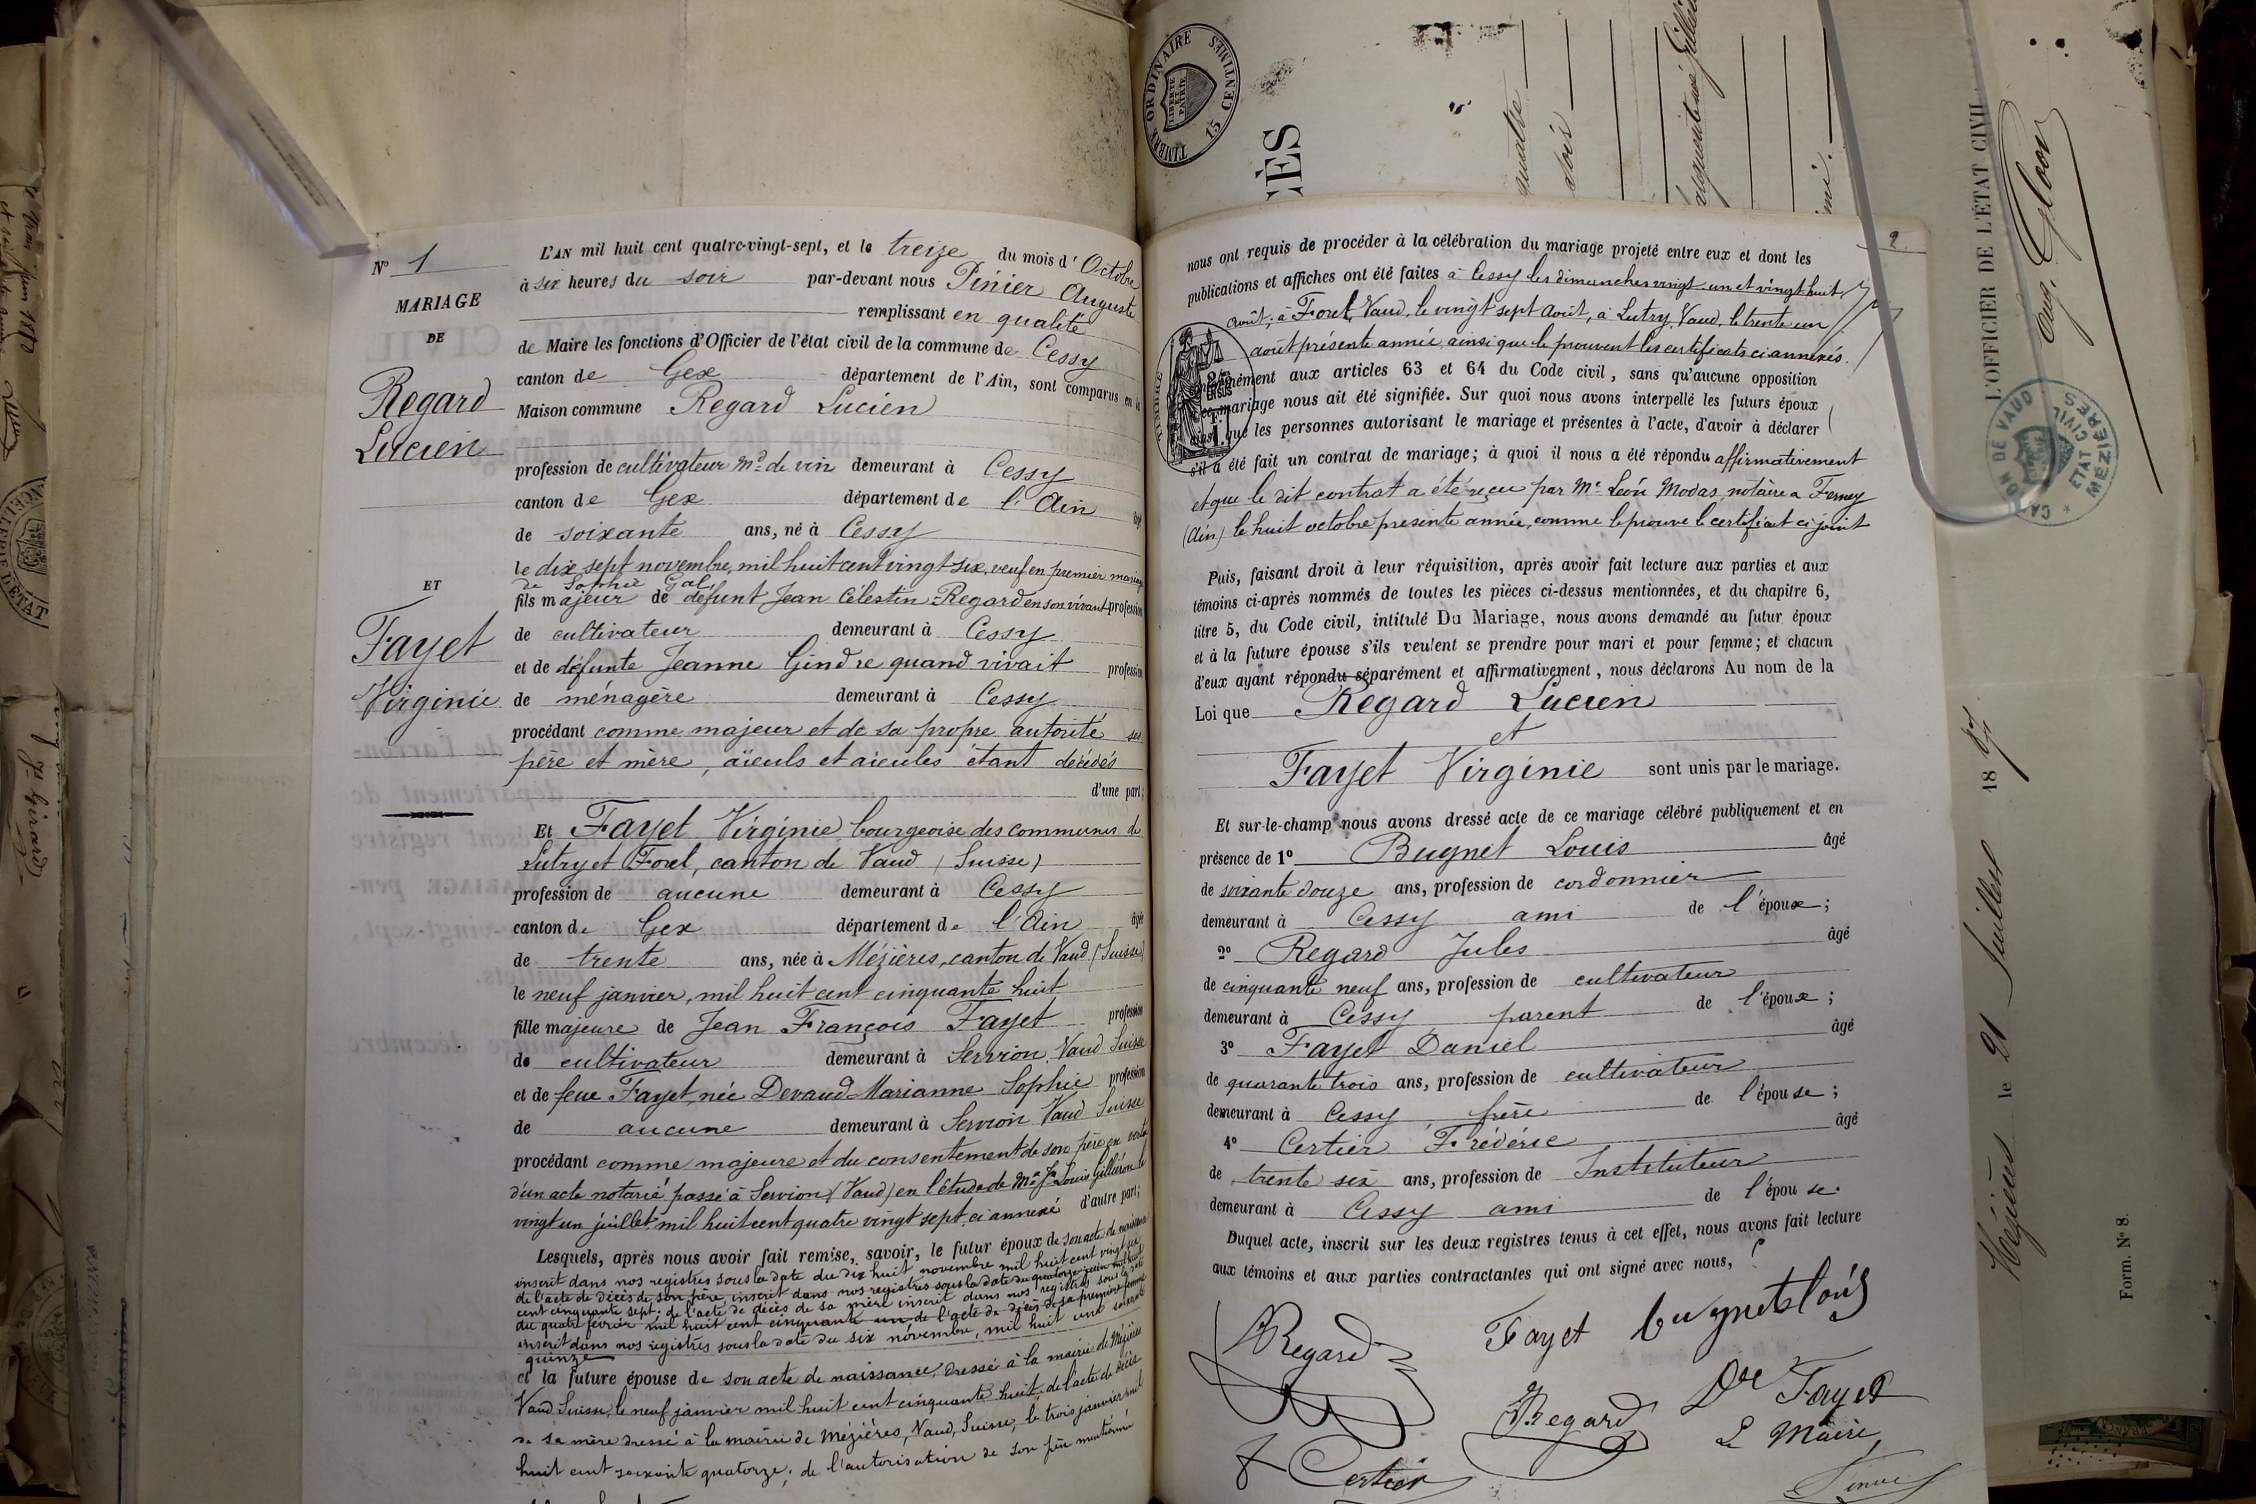 Nº 1
MARIAGE
DE
Regard
Lucien
ET
Fayet
Virginie
L'AN mil huit cent quatre-vingt-sept, et le treize du mois d'Octobre
à six heures du soir par-devant nous Pinier Auguste
remplissant en qualité
de Maire les fonctions d'Officier de l'état civil de la commune de Cessy
canton de Gex département de l'Ain, sont comparus en la
Maison commune Regard Lucien
profession de cultivateur Md. de vin demeurant à Cessy
canton de Gex département de l'Ain âgé
de soixante ans, né à Cessy
le dix sept novembre, mil huit cent vingt six, veuf en premier mariage
de Sophie Gal
fils majeur de défunt Jean Célestin Regard en son vivant profession
de cultivateur demeurant à Cessy
et de défunte Jeanne Gindre quand vivait profession
de ménagère demeurant à Cessy
procédant comme majeur et de sa propre autorité ses
père et mère, aïeuls et aieules étant décédés
d'une part;
Et Fayet Virginie bourgeoise des communes de
Lutry et Forel, canton de Vaud (Suisse)
profession de aucune demeurant à Cessy
canton de Gex département de l'Ain âgée
de trente ans, née à Mézières, canton de Vaud (Suisse)
le neuf janvier, mil huit cent cinquante huit
fille majeure de Jean François Fayet profession
de cultivateur demeurant à Servion, Vaud Suisse
et de feue Fayet, née Devaud Marianne Sophie profession
de aucune demeurant à Servion Vaud Suisse
procédant comme majeure et du consentement de son père en vertu
d'un acte notarié passé à Servion (Vaud) en l'étude de Me Jn Louis Gilliéron le
vingt un juillet mil huit cent quatre vingt sept ci annexé d'autre part;
Lesquels, après nous avoir fait remise, savoir, le futur époux de son acte de naissance
inscrit dans nos registres sous la date du dix huit novembre mil huit cent vingt six
de l'acte de décès de son père, inscrit dans nos registres sous la date du quatorze juin mil huit
cent cinquante sept; de l'acte de décès de sa mère inscrit dans nos registres sous la date
du quatre février mil huit cent cinquante un de l'acte de décès de sa première femme
inscrit dans nos registres sous la date du six novembre, mil huit cent soixante
quinze
et la future épouse de son acte de naissance, dressé à la mairie de Mézières
Vaud Suisse, le neuf janvier mil huit cent cinquante huit; de l'acte de décès
de sa mère dressé à la mairie de Mézières, Vaud, Suisse, le trois janvier mil
huit cent soixante quatorze; de l'autorisation de son père mentionné
2
nous ont requis de procéder à la célébration du mariage projeté entre eux et dont les
publications et affiches ont été faites à Cessy les dimanches vingt-un et vingt huit
août; à Forel, Vaud, le vingt sept août, à Lutry, Vaud, le trente un
août présente année, ainsi que le prouvent les certificats ci annexés.
conformément aux articles 63 et 64 du Code civil, sans qu'aucune opposition
à ce mariage nous ait été signifiée. Sur quoi nous avons interpellé les futurs époux
ainsi que les personnes autorisant le mariage et présentes à l'acte, d'avoir à déclarer
s'il a été fait un contrat de mariage; à quoi il nous a été répondu affirmativement
et que le dit contrat a été reçu par Me Léon Modas, notaire à Ferney
(Ain) le huit octobre présente année, comme le prouve le certificat ci joint
Puis, faisant droit à leur réquisition, après avoir fait lecture aux parties et aux
témoins ci-après nommés de toutes les pièces ci-dessus mentionnées, et du chapitre 6,
titre 5, du Code civil, intitulé Du Mariage, nous avons demandé au futur époux
et à la future épouse s'ils veulent se prendre pour mari et pour femme; et chacun
d'eux ayant répondu séparément et affirmativement, nous déclarons Au nom de la
Loi que Regard Lucien
et
Fayet Virginie sont unis par le mariage.
Et sur-le-champ nous avons dressé acte de ce mariage célébré publiquement et en
présence de 1º Bugnet Louis âgé
de soixante douze ans, profession de cordonnier
demeurant à Cessy ami de l'époux;
2º Regard Jules âgé
de cinquante neuf ans, profession de cultivateur
demeurant à Cessy parent de l'époux;
3º Fayet Daniel âgé
de quarante trois ans, profession de cultivateur
demeurant à Cessy frère de l'épouse;
4º Certier Frédéric âgé
de trente six ans, profession de Instituteur
demeurant à Cessy ami de l'épouse.
Duquel acte, inscrit sur les deux registres tenus à cet effet, nous avons fait lecture
aux témoins et aux parties contractantes qui ont signé avec nous,
Regard
Fayet
bugnet louis
Regard
Del Fayet
Le Maire
Certier
Pinier
TIMBRE ORDINAIRE
15 CENTIMES
LIBERTÉ ET PATRIE
quatre
L'OFFICIER DE L'ÉTAT CIVIL
Aug. Gloor
CANTON DE VAUD
ETAT CIVIL
MÉZIÈRES
Mézières le 21 Juillet 1887
Form. Nº 8.